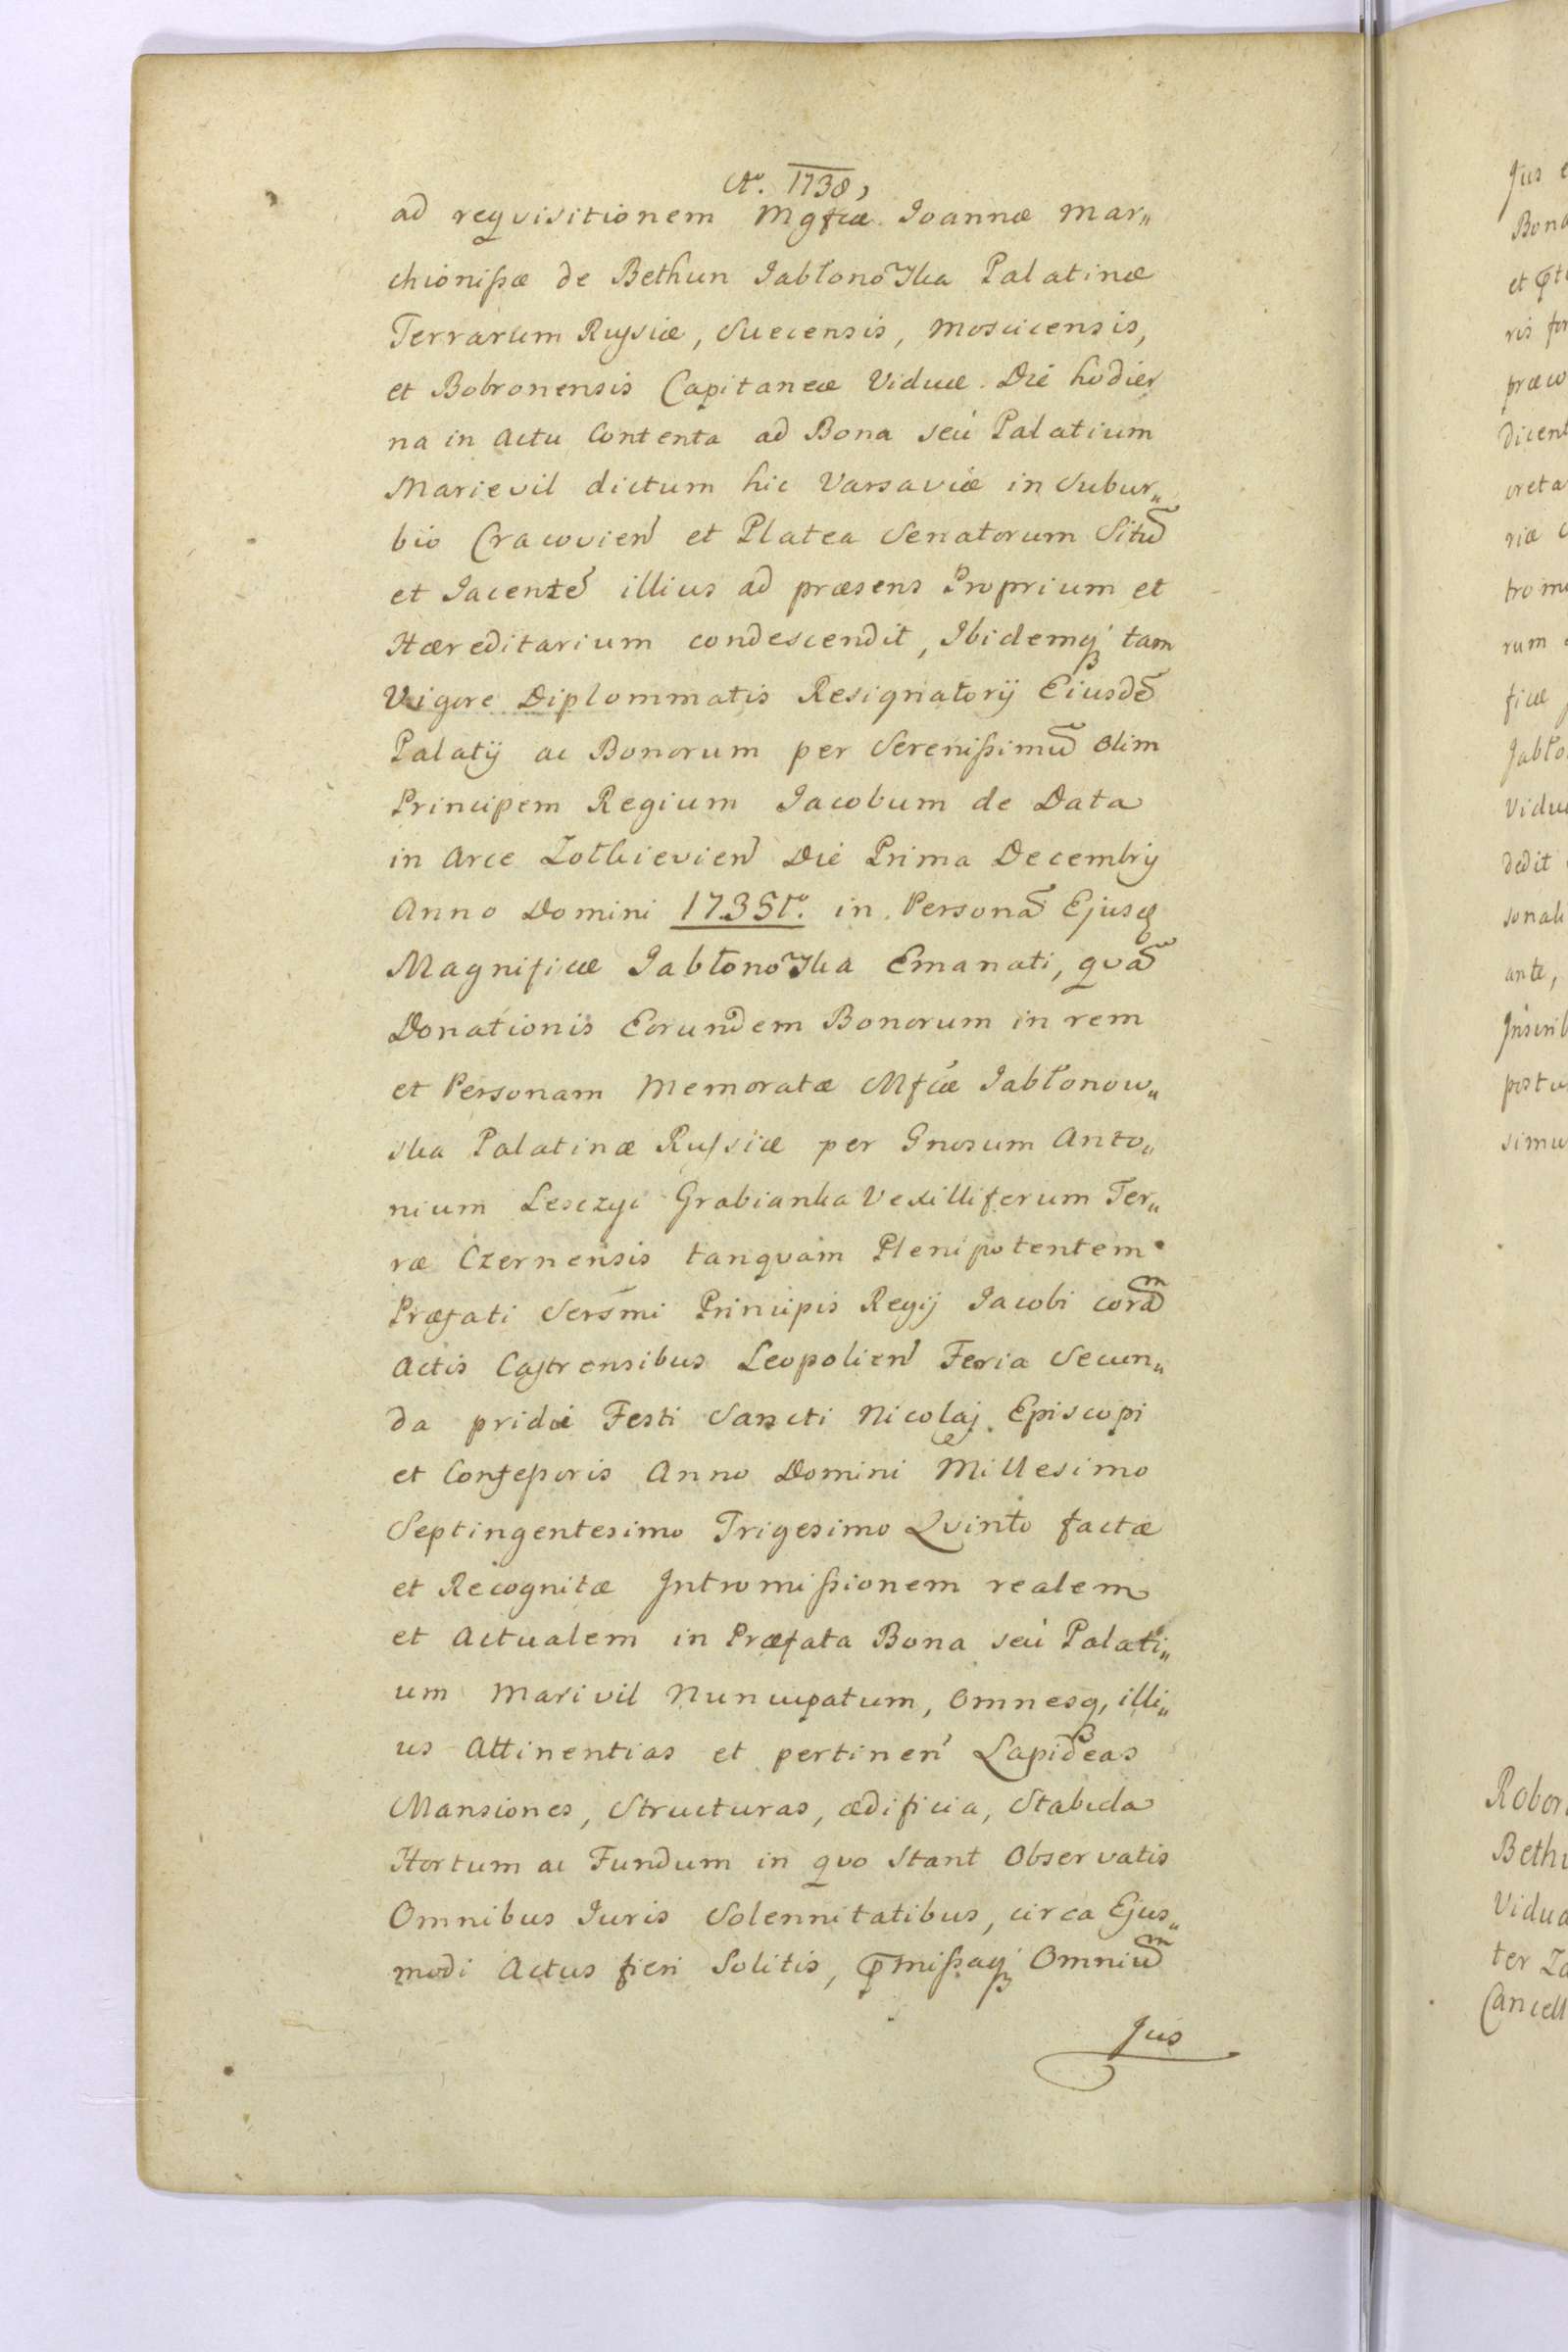 Aº. 1738,
ad reqvisitionem Mgfcæ Joannæ Mar„
chionißæ de Bethun Jabłonowska Palatinæ
Terrarum Russiæ, Suecensis, Moscicensis,
et Bobronensis Capitaneæ Viduæ. Die hodier
na in Actu Contenta ad Bona seu Palatium
Marievil dictum hic Varsaviæ in Subur„
bio Cracovien et Platea Senatorum Situ̅
et Jacente̅ illius ad præsens Proprium et
Hæreditarium condescendit, Ibidemq; tam
Vigore Diplommatis Resignatorij Eiusde̅
Palatij ac Bonorum per Serenißimu̅ olim
Principem Regium Jacobum de Data
in Arce Zołkievien Die Prima Decembrij
Anno Domini 1735tº. in Persona̅ Ejusd
Magnificæ Jabłonowska Emanati, qva̅
Donationis Eorundem Bonorum in rem
et Personam Memoratæ Mfcæ Jabłonow„
ska Palatinæ Russiæ per Gnosum Anto„
nium Lesczyc Grabianka Vexilliferum Ter„
ræ Czernensis tanqvam Plenipotentem
Præfati Sersmi Principis Regij Jacobi cora̅m
Actis Castrensibus Leopolien Feria Secun„
da pridie Festi Sancti Nicolaj Episcopi
et Confeßoris Anno Domini Millesimo
Septingentesimo Trigesimo Qvinto factæ
et Recognitæ Intromißionem realem
et Actualem in Præfata Bona seu Palati„
um Marivil Nuncupatum, omnesq, illi„
us Attinentias et pertinen Lapideas
Mansiones, Structuras, ædificia, Stabula
Hortum ac Fundum in qvo stant Observatis
Omnibus Juris Solennitatibus, circa Ejus„
modi Actus fieri Solitis, p̅mißaq; Omniu̅m
Jus